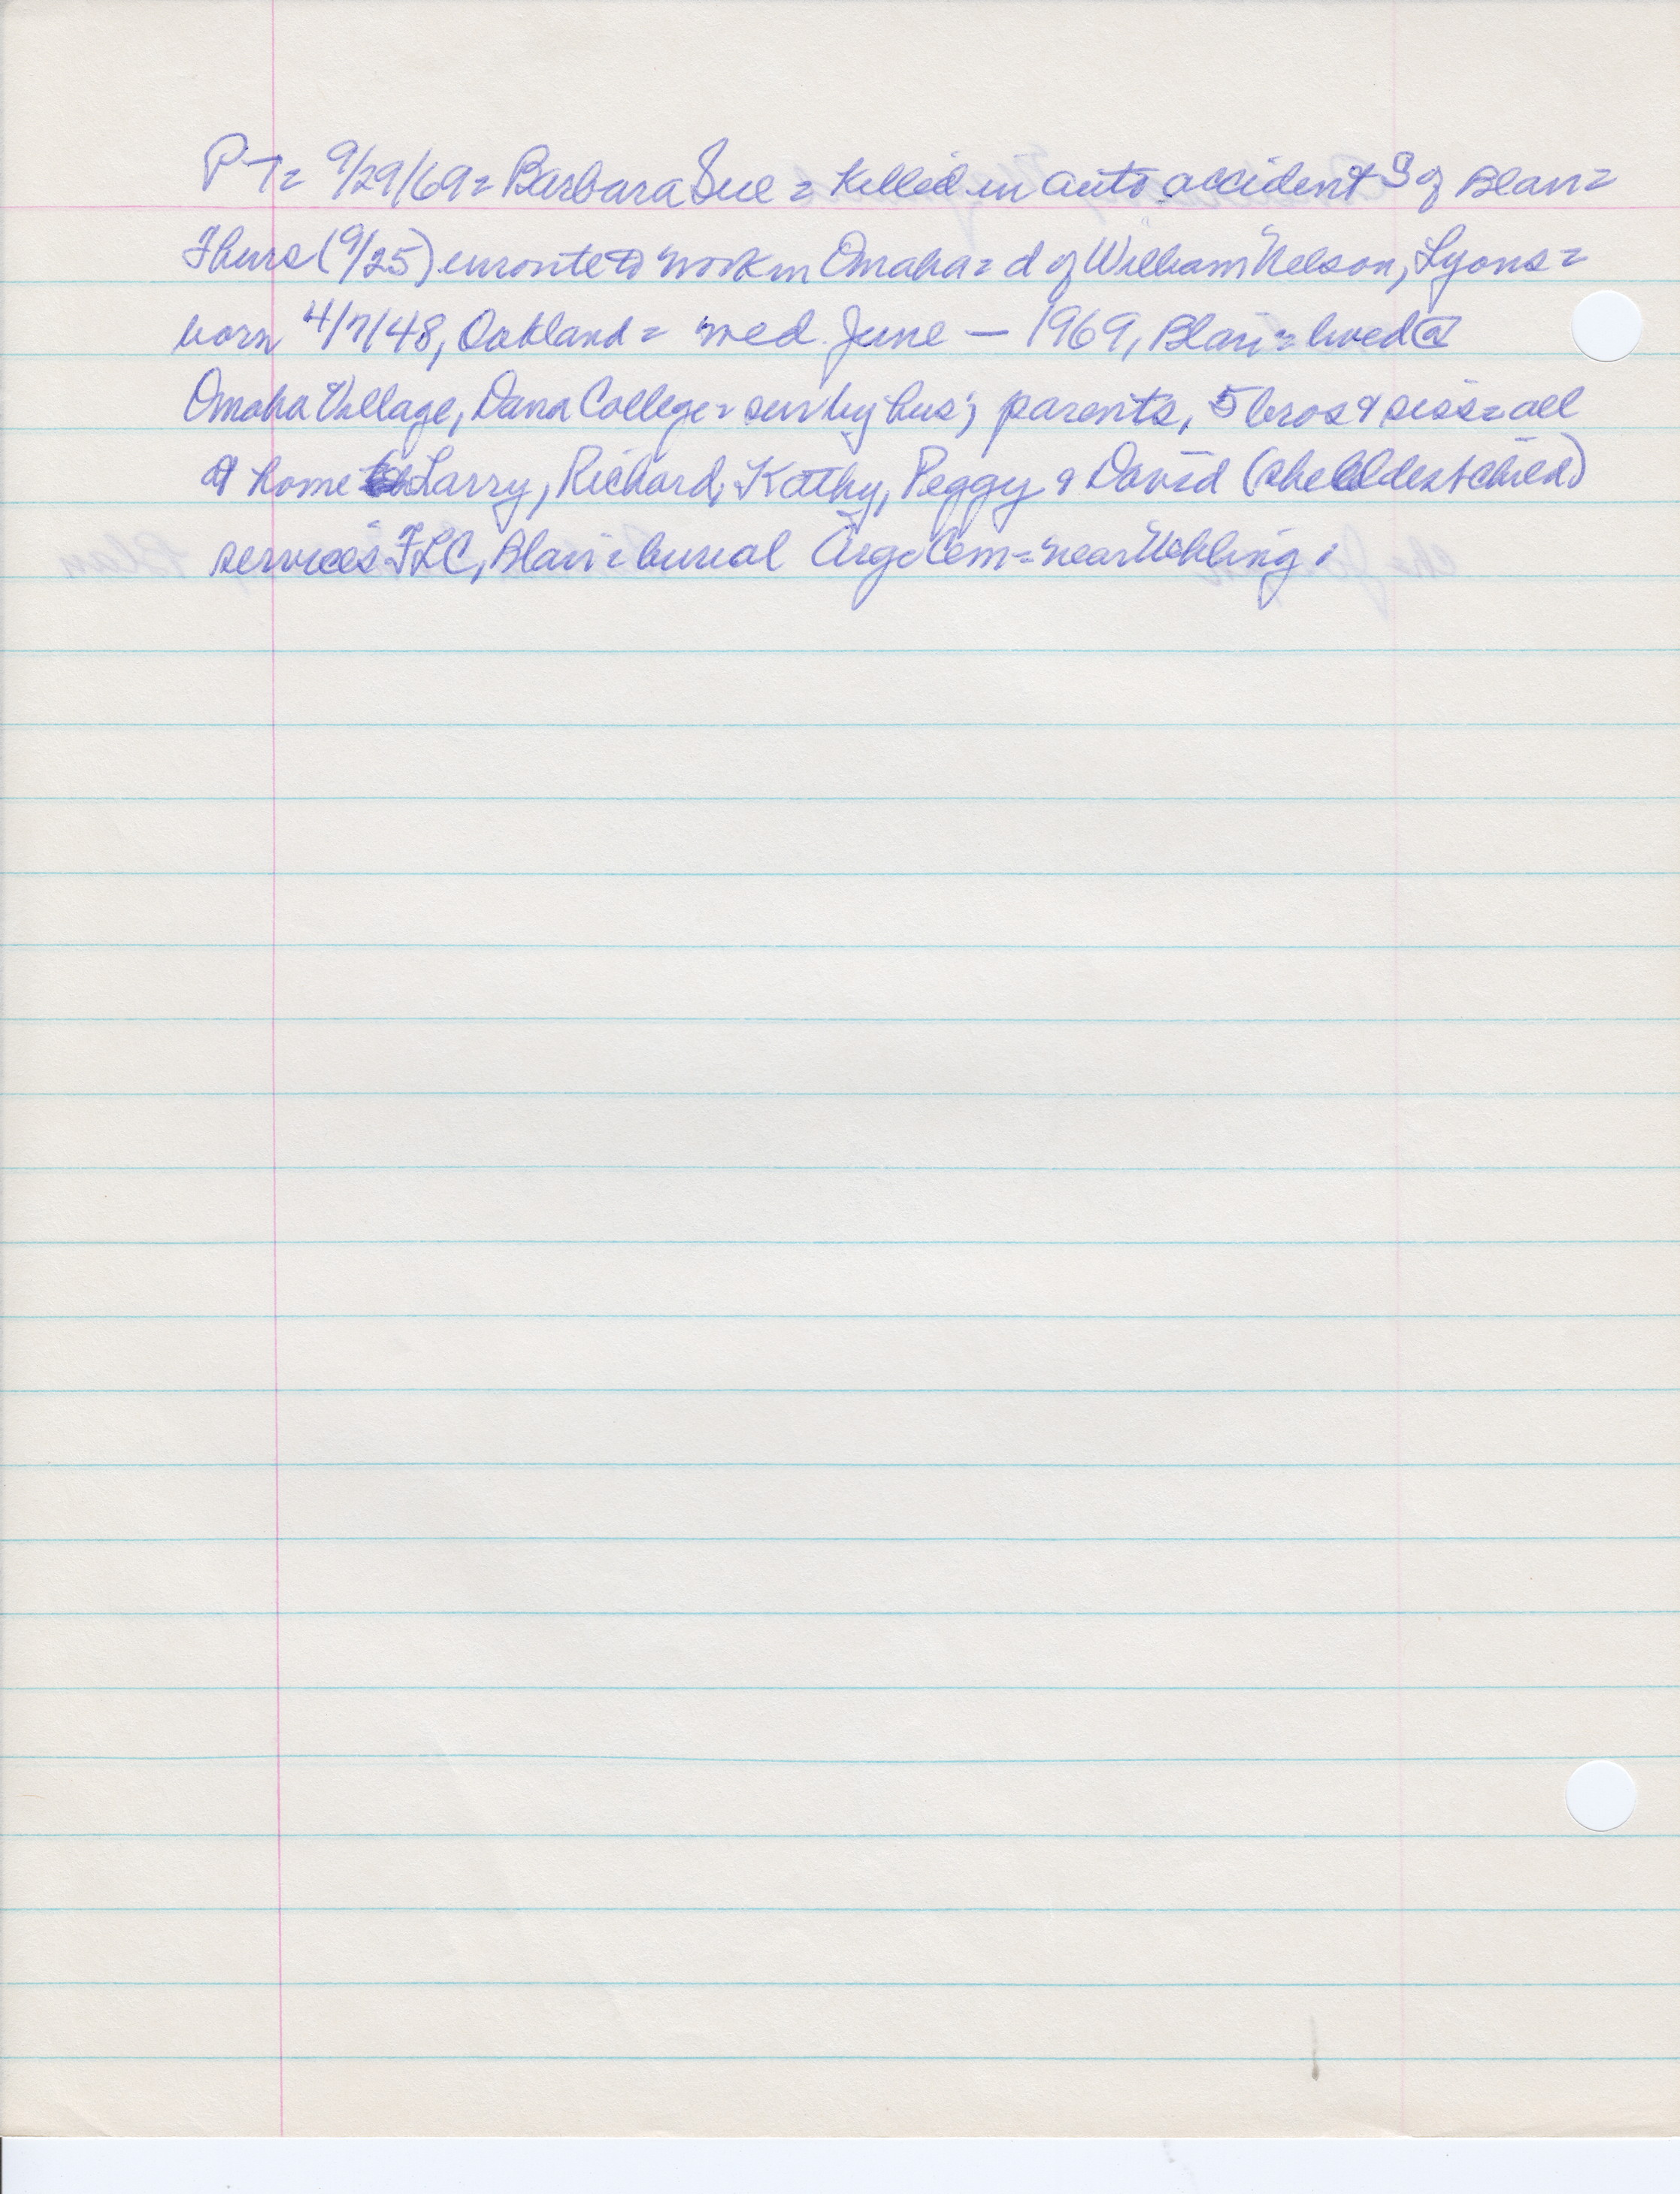 PT= 9/29/69= Barbara Sue = killed in auto accident S of Blair=
Thurs (9/25) enroute to work in Omaha= d of William Nelson, Lyons=
born 4/7/48, Oakland= wed June — 1969, Blair= lived @
Omaha Village, Dana College= surv by hus; parents, 5 bros & siss= all
@ home Larry, Richard, Kathy, Peggy & David (she oldest child)
services FLC, Blair= burial Argo Cem= near Uehling.